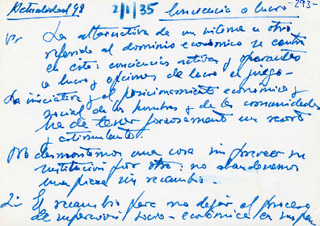 Actualidad 98 2/1/35 Conciencia o lucro 293-
La alternativa de un sistema u otro
referido al dominio económico se centra
en estos conciencias activas y operantes
o lucro y opciones de lucro el juego-
La iniciativa y el posicionamiento económico y
social de los hombres y de las comunidades
ha de tener forzosamente un
y estimulante
No desmontemos una cosa sin proveer su
sustitución por otra: no abandonemos
una pieza sin recambio.-
El recambio para no dejar el proceso
de supervivencia socio-económica en